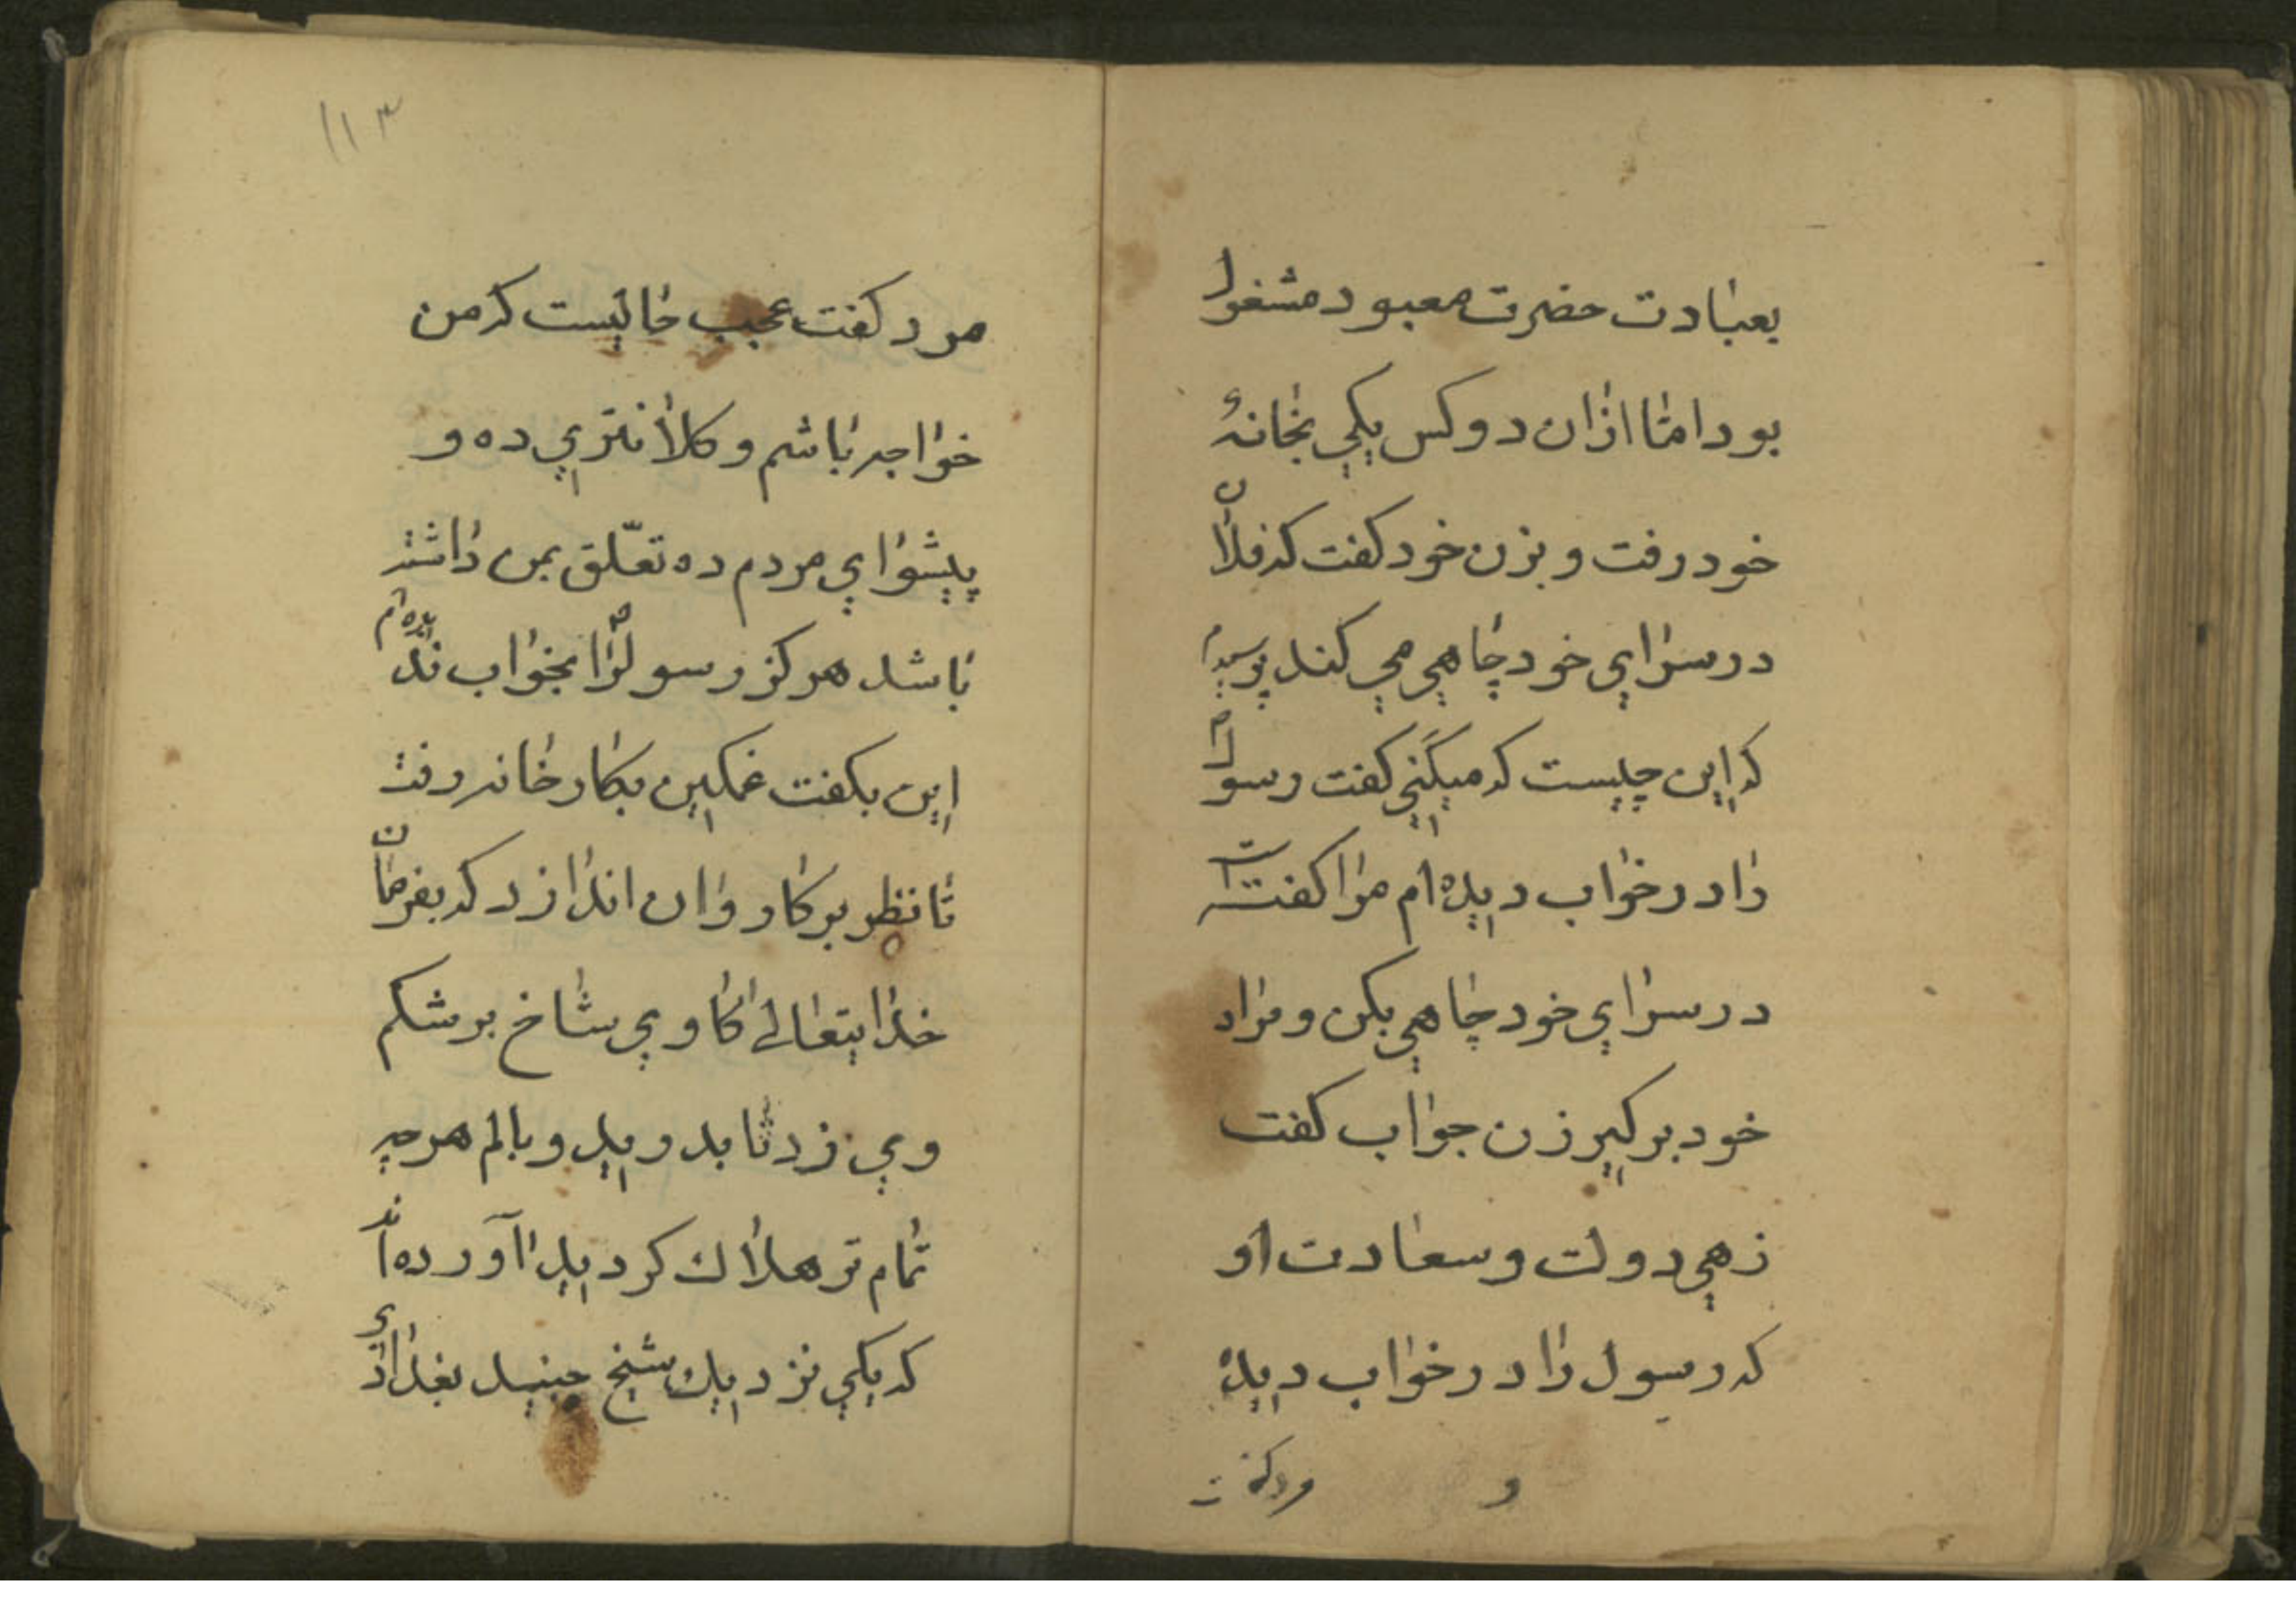 بعبادت حضرت معبود مشغول
بود امّا ازان دو کس یکی بخانهٔ
خود رفت و بزن خود کفت که فلان
در سرای خود چاهی می کند پرسیدم
که این چیست که میکَنی کفت رسولؐ
را در خواب دیده ام مرا کفتست
در سرای خود چاهی بکن و مراد
خود برکیر زن جواب کفت
زهی دولت و سعادت او
که رسول را در خواب دیده
و مرد کفت
۱۱۳
مرد کفت عجب حالیست که من
خواجه باشم و کلانتری ده و
پیشوای مردم ده تعلّق بمن داشته
باشد هرکز رسولؐرا بخواب ندیده ام
این بکفت غمکین بکار خانه رفت
تا نظر بر کاروان اندازد که بفرمان
خدایتعالی کاوی شاخ بر شکم
وی زد تا بدرید و بالم هرچه
تمام تر هلاک کردیدا آورده اند
که یکی نزدیک شیخ جنید بغدادی